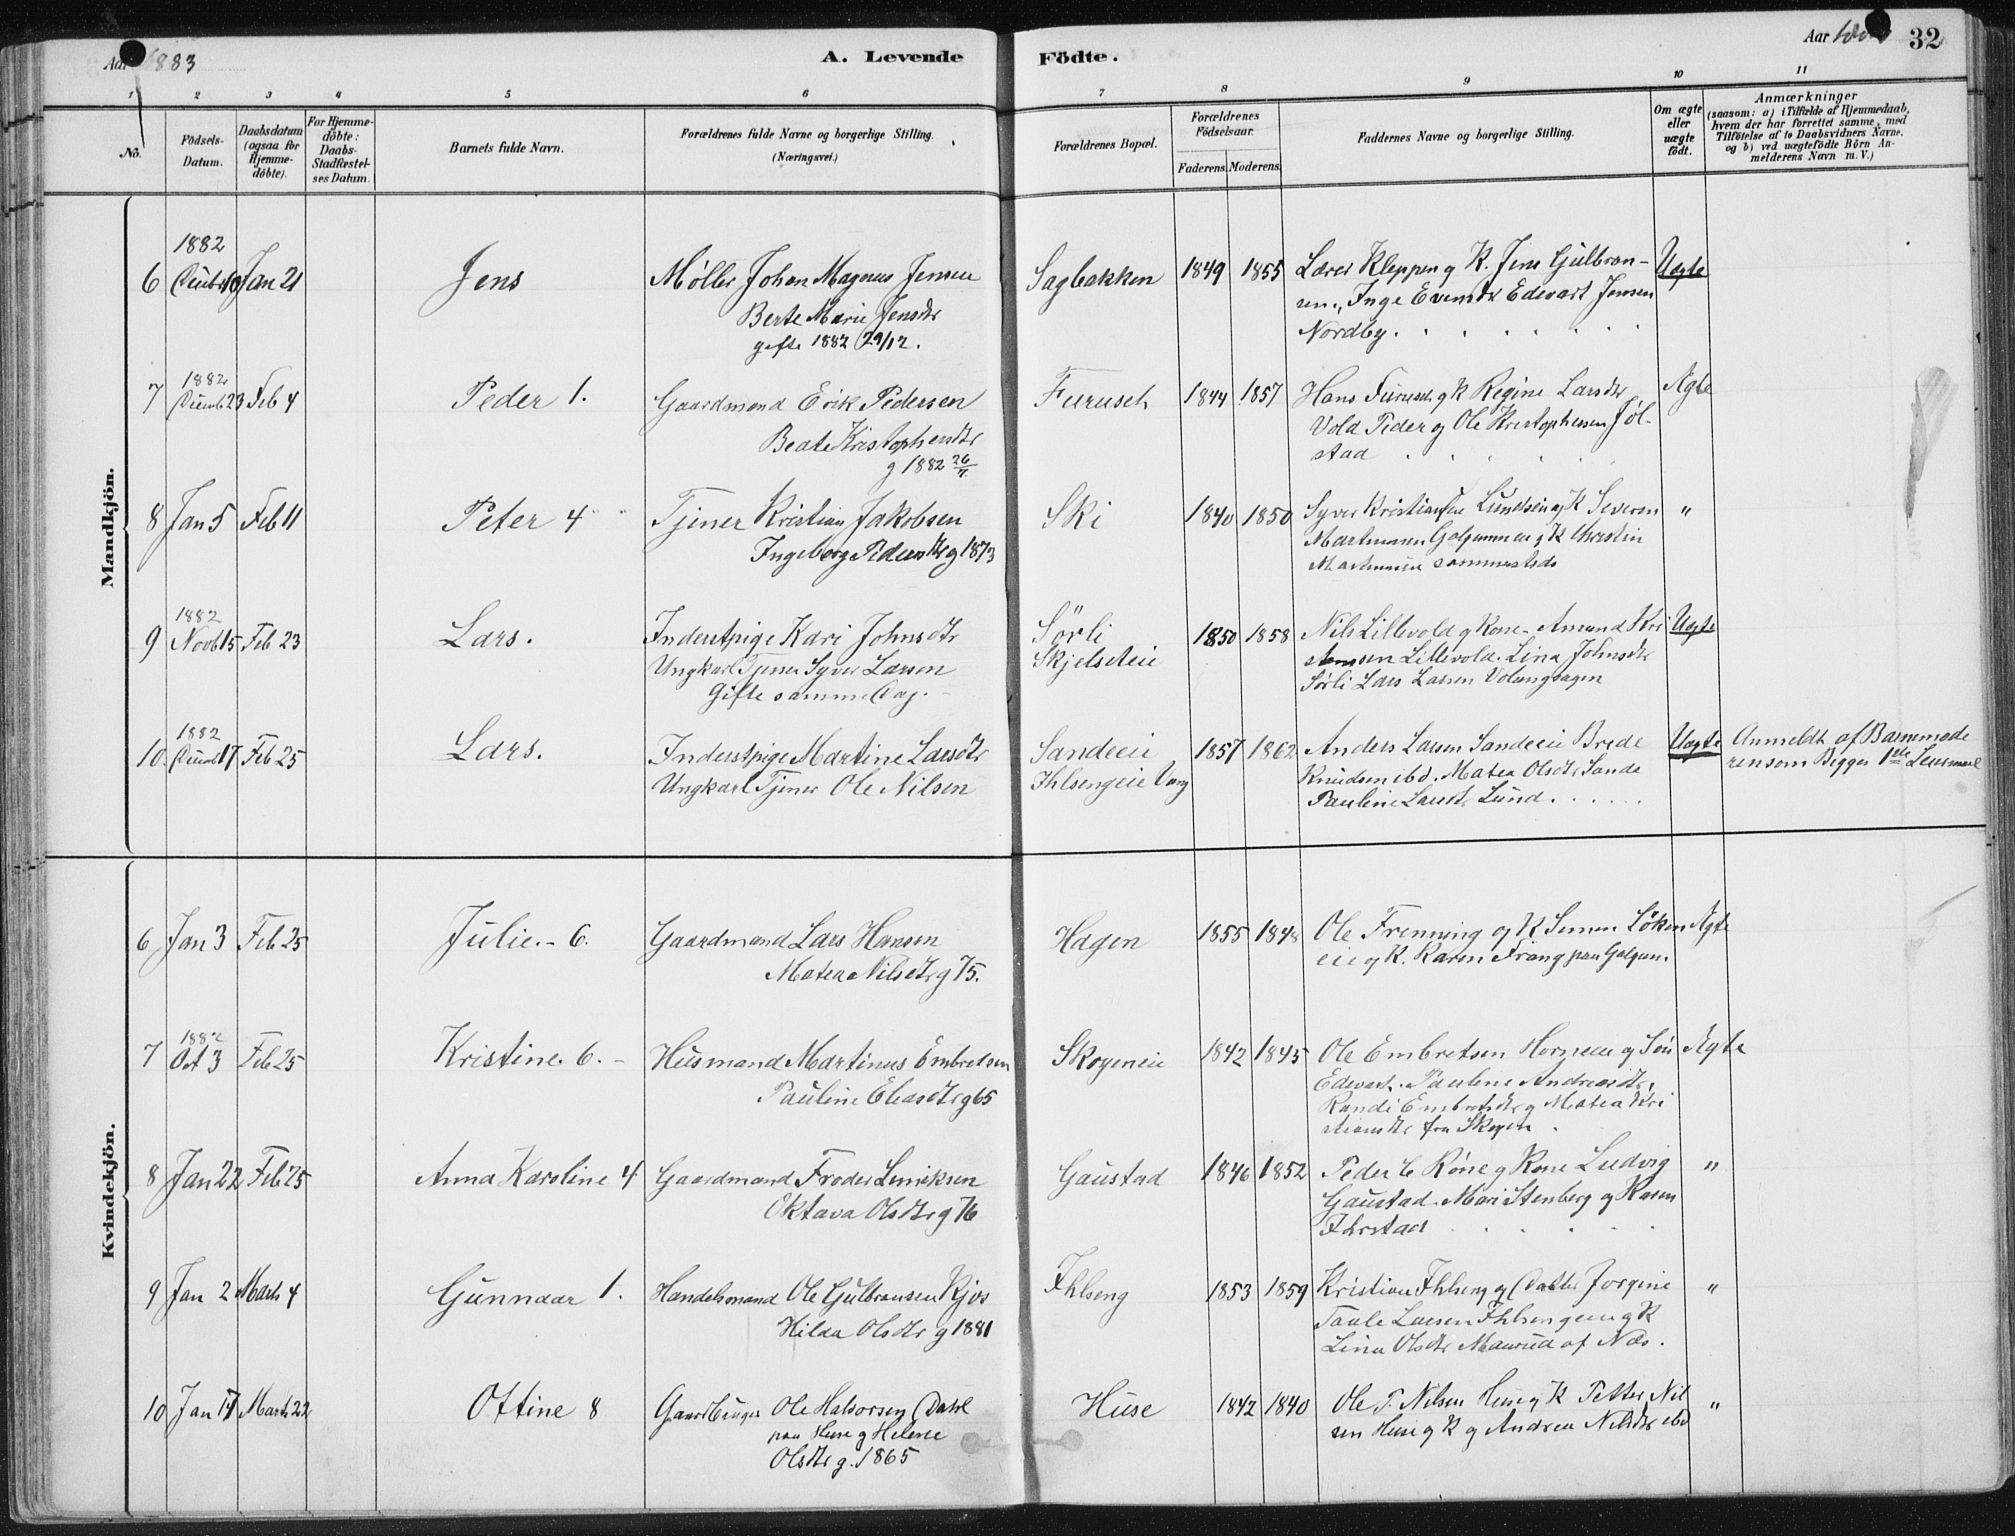 Aar 1883
A. Levende Födte.
Aar
32
1 2 3 4 5 6 7 8 9 10 11
No.
Födsels-Datum.
Daabsdatum (ogsaa for Hjemme-döbte).
For Hjemme-döbte: Daabs-Stadfæstel-ses Datum.
Barnets fulde Navn.
Forældrenes fulde Navne og borgerlige Stilling. (Næringsvei.)
Forældrenes Bopæl.
Forældrenes Födselsaar.
Faderens. Moderens.
Faddernes Navne og borgerlige Stilling.
Om ægte eller uægte födt.
Anmærkninger
(saasom: a) i Tilfælde af Hjemmedaab,
hvem der har forrettet samme, med
Tilföielse af to Daabsvidners Navne.
og b) ved uægtefödte Börn An-
melderens Navn m. V.)
Mandkjön.
1882
6 Jan 21 Jens Møller Johan Magnus Jensen Sagbakken 1849 1855 Lærer Kleppen og K. Jens Gulbran- Uægte
sen, Inge Evensdtr Edevart Jensen
Berte Marie Jensdtr
Nordby.
gifte 1882 29/12.
1882
7 Decemb 23 Feb 4 Peder 1. Gaardmand Erik Pedersen Furuset 1844 1857 Hans Furuset og K Regine Larsdtr Ægte
Beate Kristophersdtr
Vold Peder og Ole Kristophersen Jøl-
stad
g 1882 26/7
8 Jan 5 Feb 11 Peter 4 Tjener Kristian Jakobsen Ski 1840 1850 Syver Kristiansen Lundsei og K Severin "
Ingeborg Pedersdtr g 1873
Martinsen og K Christin
Martinsen sammesteds
1882
9 Novb 15 Feb 23 Lars. Inderstpige Kari Johnsdtr Sörli 1850 1858 Nils Lillevold og Kone Amund Kri Uægte
Ungkarl Tjener Syver Larsen Skjelseteie
stensen Lillevold. Lina Johnsdtr
Gifte samme Dag.
Sörli Lars Larsen Volunghagen
1882
10 17 Feb 25 Lars. Inderstpige Martine Larsdtr Sandeeie 1857 1862 Anders Larsen Sandeeie Brede Uægte Anmeldt af Barnemode
Ungkarl Tjener Ole Nilsen Ihlsengeie Vang Knudsen ibd. Matea Olsdtr Sande
ren som Bigges 1ste Leiermaal
Pauline Larsdtr Lund.
Kvindekjön.
6 Jan 3 Feb 25 Julie. - 6. Gaardmand Lars Hansen Hagen 1855 1848 Ole Frenning og K Simen Löken Ægte
Matea Nilsdtr g 75.
eie og K. Karen Frang paa
1882
7 Oct 3 Feb 25 Kristine. 6. - Husmand Martinus Embretsen Skogeneie 1842 1845 Ole Embretsen Horneeie og Sön Ægte
Pauline Eliasdtr g 65
Edevart. Pauline Andreasdtr,
Randi Embretsdtr og Matea Kri
stiansdtr fra Skogen.
8 Jan 22 Feb 25 Anna Karoline 4 Gaardmand Froder Lenriksen Gaustad 1846 1852 Peder C Röne og Kone Ludvig "
Oktava Olsdtr g 76
Gaustad. Mari Stenberg og Karen
Ihrstad
9 Jan 2 Marts 4 Gunnaar 1. Handelsmand Ole Gulbransen Kjos Ihlseng 1853 1859 Kristian Ihlseng og Datter Jorgine "
Hilda Olsdtr g 1881
Taale Larsen Ihlsengeie og K
Lina Olsdtr Maurud af Næs.
10 Jan 17 Marts 22 Ottine 8 Gaardbruger Ole Halvorsen Dahl Huse 1842 1840 Ole P. Nilsen Huse og K Petter Nil "
paa Huse og Helene
sen Huse og K og Andrea Nilsdtr ibd
Olsdtr g. 1865